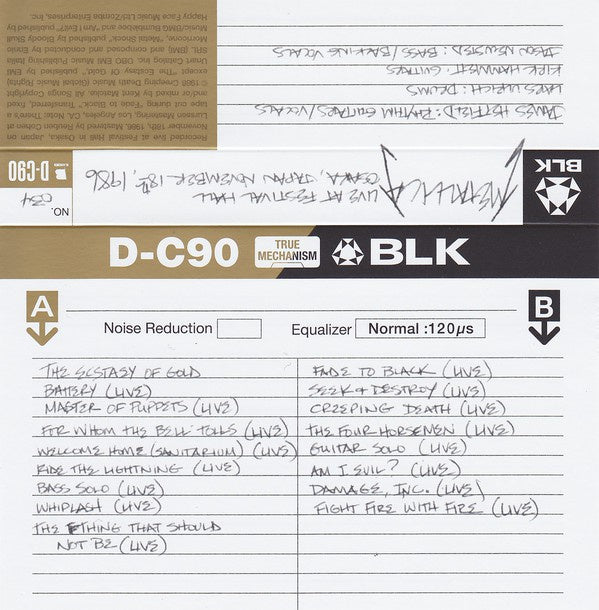 JAMES HETFIELD: RHYTHM GUITARS/VOCALS
LARS ULRICH: DRUMS
KIRK HAMMETT: GUITARS
JASON NEWSTED: BASS/BACKING VOCALS
Recorded live at Festival Hall in Osaka, Japan on
November 18th, 1986. Mastered by Reuben Cohen at
Lurssen Mastering, Los Angeles, CA. There's a
tape cut during "Fade to Black." Transferred, fixed
and/or mixed by Kent Matcke. All Songs Copyright
© 1986 Creeping Death Music (Global Music Rights)
except "The Ecstasy Of Gold," published by EMI
Unart Catalog Inc. OBO EMI Music Publishing Italia
SRL (BMI) and composed and conducted by Ennio
Morricone, published by Bloody Skull
Music/BMG Bumblebee and "Am I Evil?" published by
Happy Face Music Ltd/Zomba Enterprises, Inc.
BLK
METALLICA
LIVE AT FESTIVAL HALL
OSAKA, JAPAN NOVEMBER 18th, 1986
NO. 034
D-C90
D-C90 TRUE MECHANISM BLK
A
B
Noise Reduction
Equalizer Normal :120µs
THE ECSTASY OF GOLD
BATTERY (LIVE)
MASTER OF PUPPETS (LIVE)
FOR WHOM THE BELL TOLLS (LIVE)
WELCOME HOME (SANITARIUM) (LIVE)
RIDE THE LIGHTNING (LIVE)
BASS SOLO (LIVE)
WHIPLASH (LIVE)
THE THING THAT SHOULD
NOT BE (LIVE)
FADE TO BLACK (LIVE)
SEEK + DESTROY (LIVE)
CREEPING DEATH (LIVE)
THE FOUR HORSEMEN (LIVE)
GUITAR SOLO (LIVE)
AM I EVIL? (LIVE)
DAMAGE, INC. (LIVE)
FIGHT FIRE WITH FIRE (LIVE)